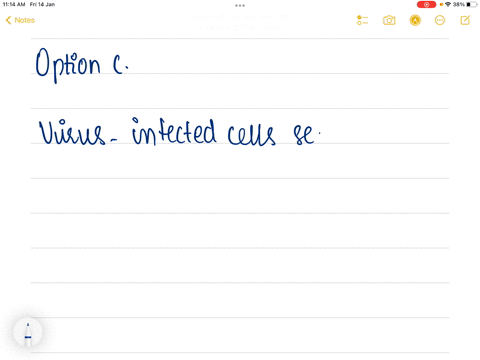 11:14 AM Fri 14 Jan
38%
Notes
Option C.
Virus- infected cells se